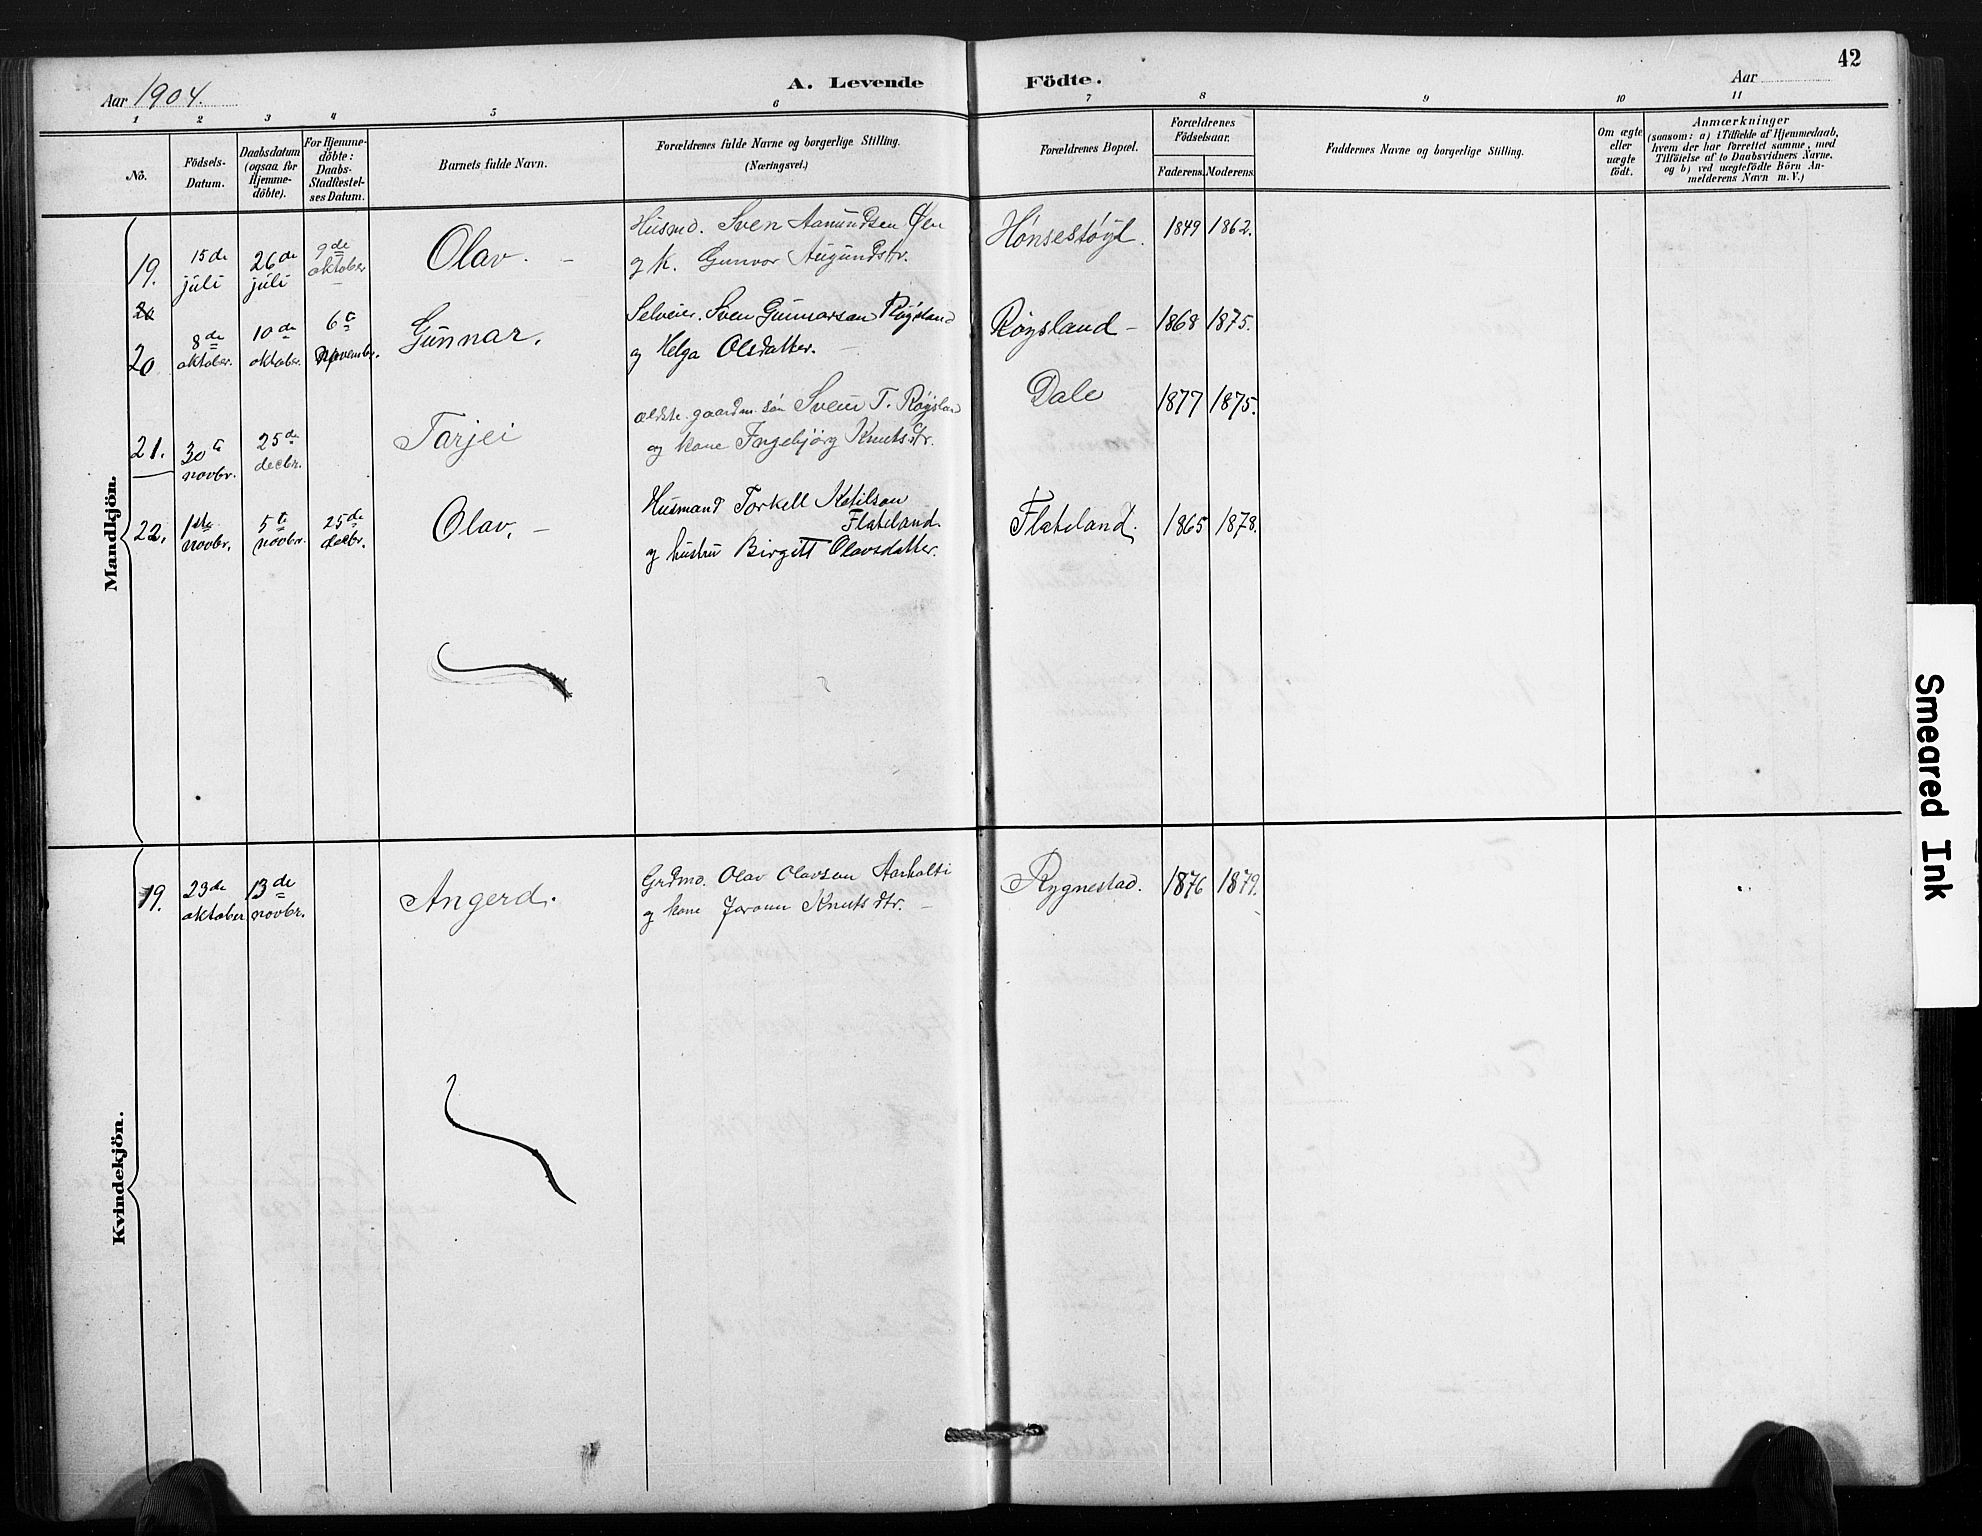 42
Aar 1904.
A. Levende Födte.
Aar
1 2 3 4 5 6 7 8 9 10 11
No.
Födsels-
Datum.
Daabsdatum
(ogsaa for
Hjemme-
döbte).
For Hjemme-
döbte:
Daabs-
Stadfæstel-
ses Datum.
Barnets fulde Navn.
Forældrenes fulde Navne og borgerlige Stilling.
(Næringsvei.)
Forældrenes Bopæl.
Forældrenes
Födselsaar.
Faderens. Moderens.
Faddernes Navne og borgerlige Stilling.
Om ægte
eller
uægte
födt.
Anmærkninger
(saasom: a) i Tilfælde af Hjemmedaab,
hvem der har forrettet samme, med
Tilföielse af to Daabsvidners Navne,
og b) ved uægtefödte Börn An-
melderens Navn m. V.)
Mandkjön.
19. 15de juli 26de juli 9de oktober Olav. Husmd. Sven Aamundsen Øen Hönsestøyl. 1849 1862.
og k. Gunvor Augundsdtr.
20
20 8de oktober. 10de oktober. 6te November. Gunnar. Selveier. Sven Gunnarsøn Røysland Røysland 1868 1875.
og Helga Olsdatter.
21. 30te novbr. 25de decbr. Tarjei ældste gaardm. søn Svein T. Røysland Dale 1877 1875.
og kone Ingebjörg Knutsdtr.
22. 1ste novbr. 5te novbr. 25de decbr. Olav. Husmand Torkell Ketilson
Flateland Flateland. 1865 1878.
og hustru Birgitt Olavsdatter.
Kvindekjön.
19. 23de oktober 13de novbr. Angerd. Grdmd. Olav Olavson Aarhalti Rygnestad. 1876 1879.
og kone Joronn Knuts dtr.
Smeared Ink